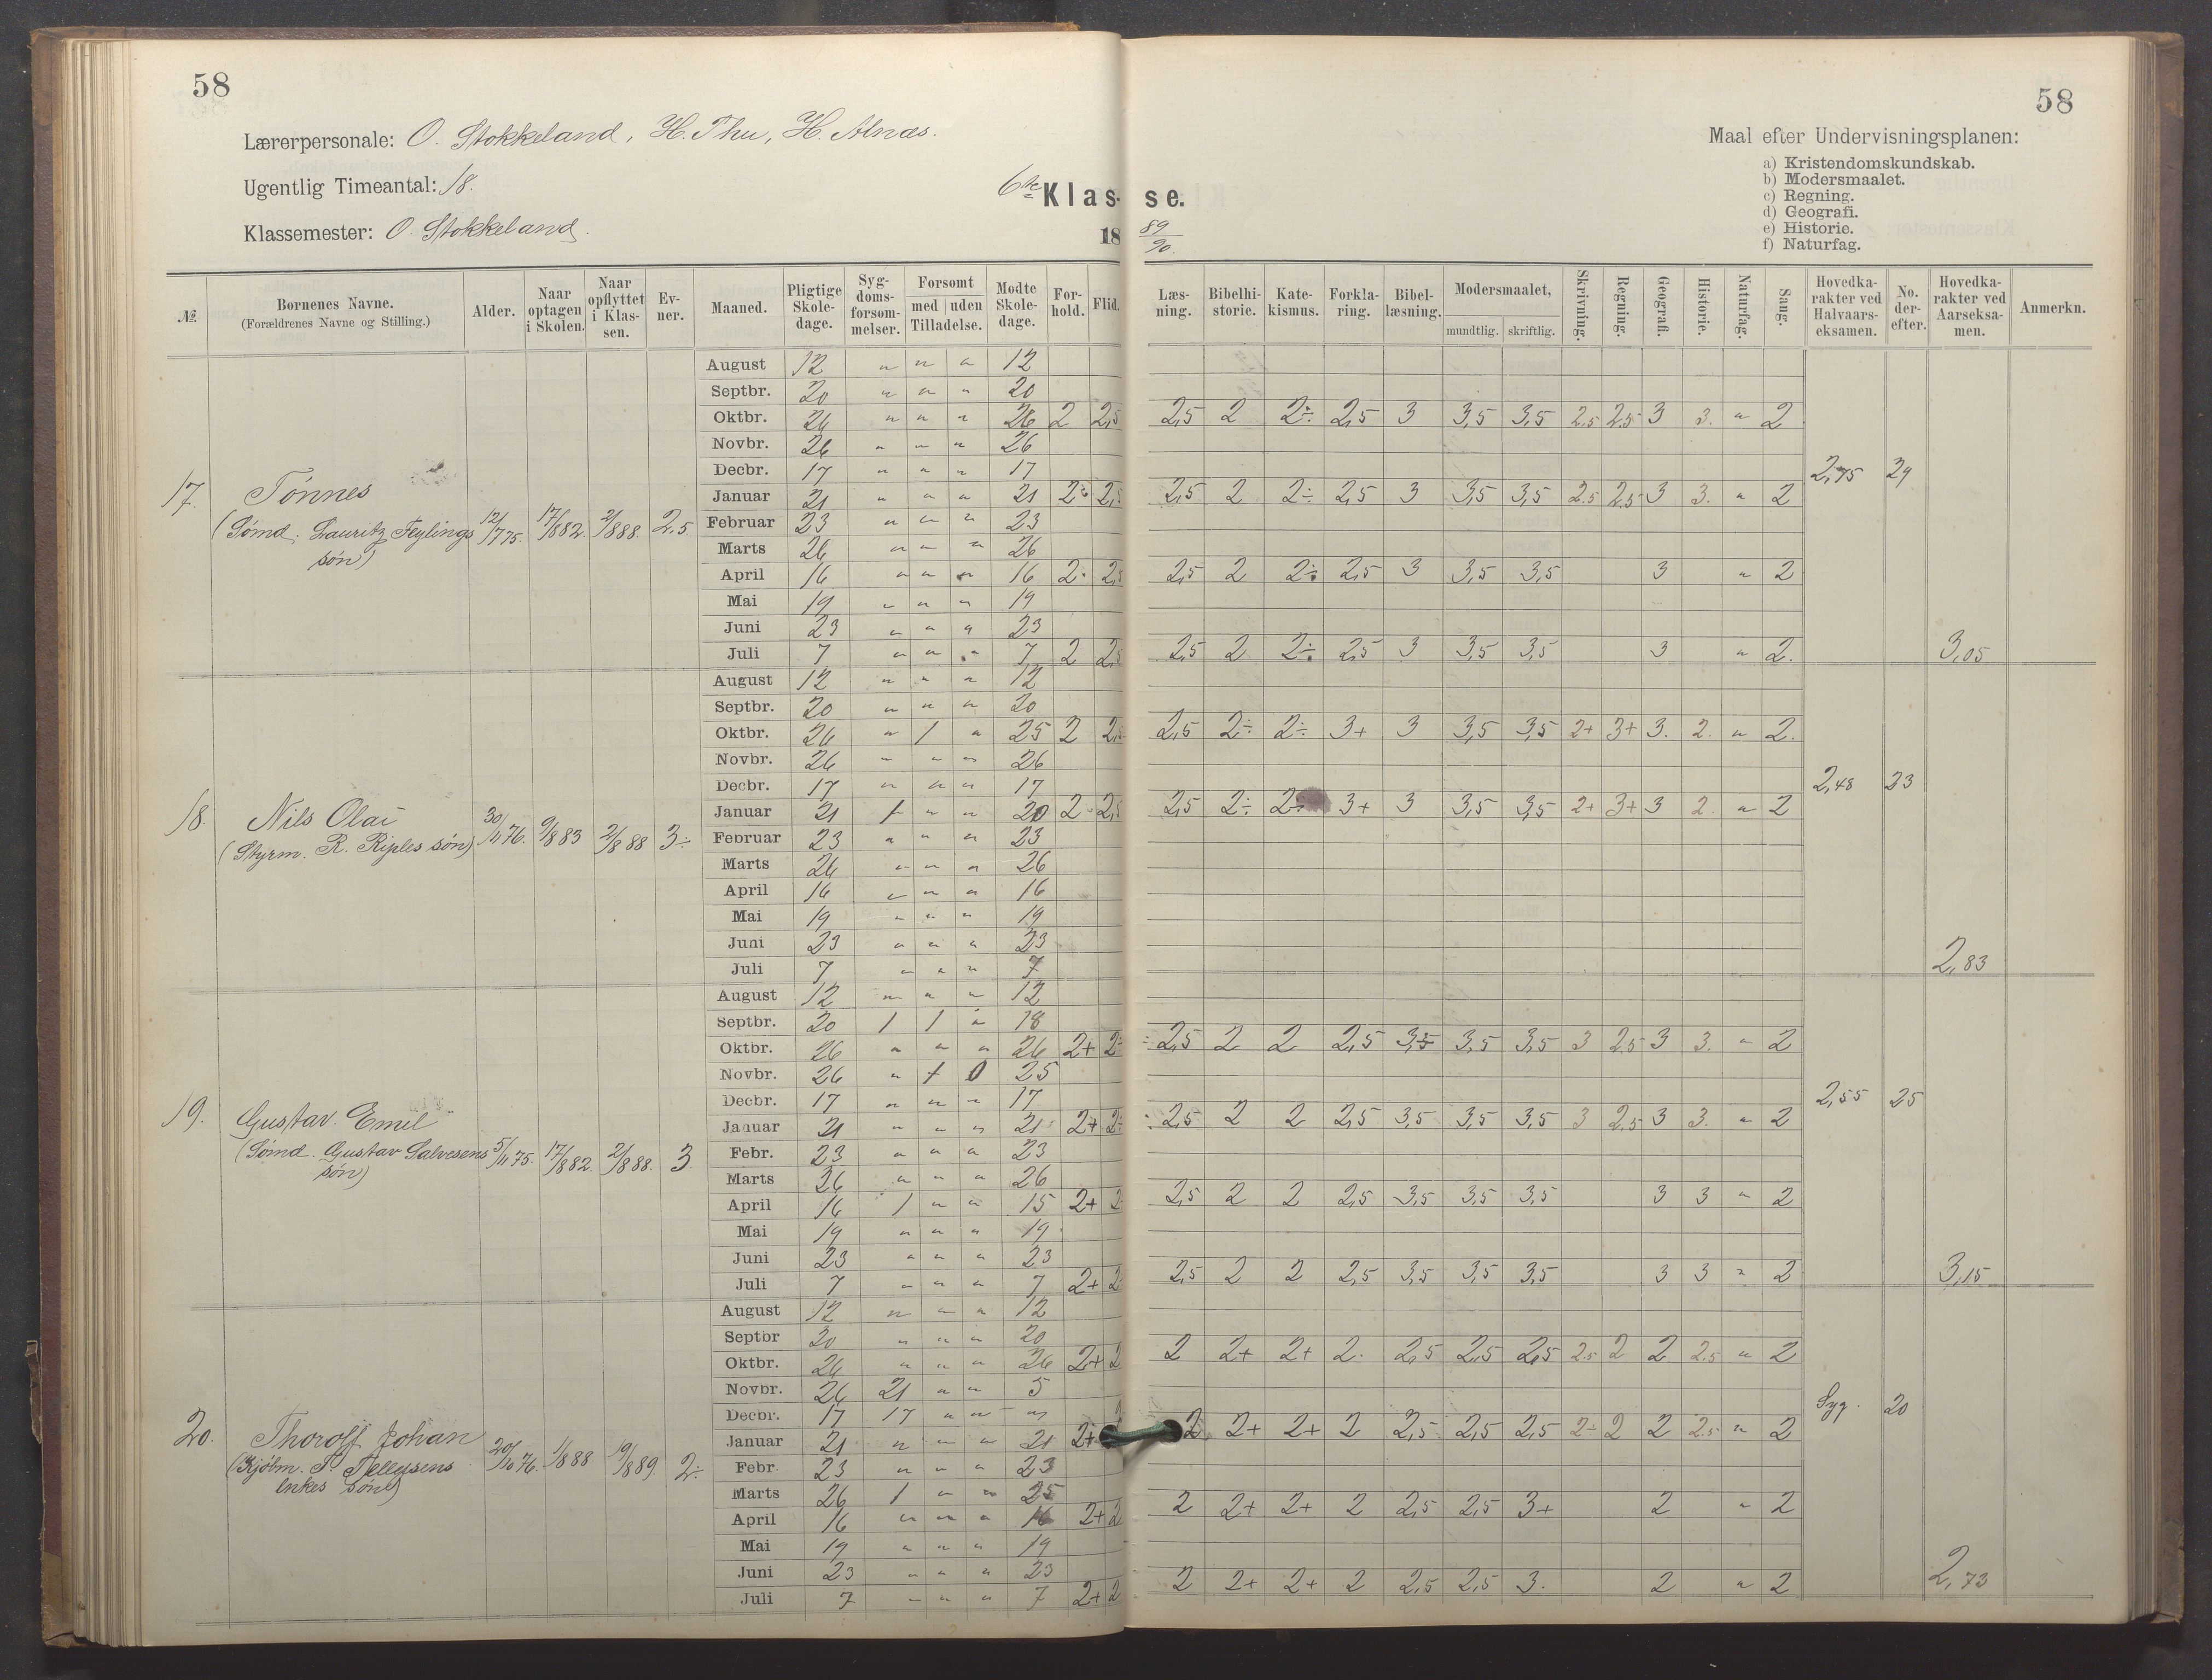 58
58
Lærerpersonale: O. Stokkeland, H. Thu, H. Alnæs.
Ugentlig Timeantal: 18.
Klassemester: O. Stokkeland.
6te Klas- se.
18 89/90.
Maal efter Undervisningsplanen:
a) Kristendomskundskab.
b) Modersmaalet.
c) Regning.
d) Geografi.
e) Historie.
f) Naturfag.
№ | Børnenes Navne. (Forældrenes Navne og Stilling.) | Alder. | Naar optagen i Skolen. | Naar opflyttet i Klassen. | Evner. | Maaned. | Pligtige Skoledage. | Sygdomsforsømmelser. | Forsømt med uden Tilladelse. | Mødte Skoledage. | Forhold. | Flid. | Læsning. | Bibelhistorie. | Katekismus. | Forklaring. | Bibellæsning. | Modersmaalet, mundtlig. skriftlig. | Skrivning. | Regning. | Geografi. | Historie. | Naturfag. | Sang. | Hovedkarakter ved Halvaarseksamen. | No. derefter. | Hovedkarakter ved Aarseksamen. | Anmerkn.
17. Tønnes (Sømd. Lauritz Feylings søn) 12/7 75. 17/8 82. 2/8 88. 2,5.
August 12 " " " 12
Septbr. 20 " " " 20
Oktbr. 26 " " " 26 2 2,5 2,5 2 2÷ 2,5 3 3,5 3,5 2.5 2.5 3 3. " 2
Novbr. 26 " " " 26
Decbr. 17 " " " 17 2,75 24
Januar 21 " " " 21 2÷ 2,5 2,5 2 2÷ 2,5 3 3,5 3,5 2.5 2.5 3 3. " 2
Februar 23 " " " 23
Marts 26 " " " 26
April 16 " " " 16 2· 2,5 2,5 2 2÷ 2,5 3 3,5 3,5 3 " 2
Mai 19 " " " 19
Juni 23 " " " 23
Juli 7 " " " 7 2 2,5 2,5 2 2÷ 2,5 3 3,5 3,5 3 " 2. 3,05
18. Nils Olai (Styrm. R. Riples søn) 30/11 76. 9/8 83 2/8 88 3÷
August 12 " " " 12
Septbr. 20 " " " 20
Oktbr. 26 " 1 " 25 2 2,5 2,5 2÷ 2÷ 3+ 3 3,5 3,5 2+ 3+ 3. 2. " 2.
Novbr. 26 " " " 26
Decbr. 17 " " " 17 2,48 23
Januar 21 1 " " 20 2 2,5 2,5 2÷ 2÷ 3+ 3 3,5 3,5 2+ 3+ 3 2. " 2
Februar 23 " " " 23
Marts 26 " " " 26
April 16 " " " 16
Mai 19 " " " 19
Juni 23 " " " 23
Juli 7 " " " 7 2,83
19. Gustav Emil (Sømd. Gustav Salvesens søn) 5/11 75. 17/8 82. 2/8 88. 3.
August 12 " " " 12
Septbr. 20 1 1 " 18
Oktbr. 26 " " " 26 2+ 2÷ 2,5 2 2 2,5 3,5 3,5 3,5 3 2.5 3 3. " 2
Novbr. 26 " 1 0 25
Decbr. 17 " " " 17 2,55 25
Januar 21 " " " 21 2+ 2÷ 2,5 2 2 2,5 3,5 3,5 3,5 3 2.5 3 3. " 2
Febr. 23 " " " 23
Marts 26 " " " 26
April 16 1 " " 15 2+ 2 2,5 2 2 2,5 3,5 3,5 3,5 3 3 " 2
Mai 19 " " " 19
Juni 23 " " " 23
Juli 7 " " " 7 2+ 2 2,5 2 2 2,5 3,5 3,5 3,5 3 3 " 2 3,15
20. Thorolf Johan (Kjøbm. T. Tellefsens enkes søn) 20/10 76. 1/8 88 19/8 89. 2÷
August 12 " " " 12
Septbr 20 " " " 20
Oktbr. 26 " " " 26 2+ 2 2 2+ 2+ 2. 2,5 2,5 2,5 2.5 2 2 2.5 " 2
Novbr. 26 21 " " 5
Decbr. 17 17 " " " Syg. 20
Januar 21 " " " 21 2+ 2 2+ 2+ 2 2,5 2,5 2,5 2÷ 2 2 2.5 " 2
Febr 23 " " " 23
Marts 26 1 " " 25
April 16 " " " 16 2+ 2 2 2+ 2+ 2 2,5 2,5 3+ 2 " 2
Mai 19 " " " 19
Juni 23 " " " 23
Juli 7 " " " 7 2+ 2 2 2+ 2+ 2 2,5 2,5 3. 2 " 2 2,73